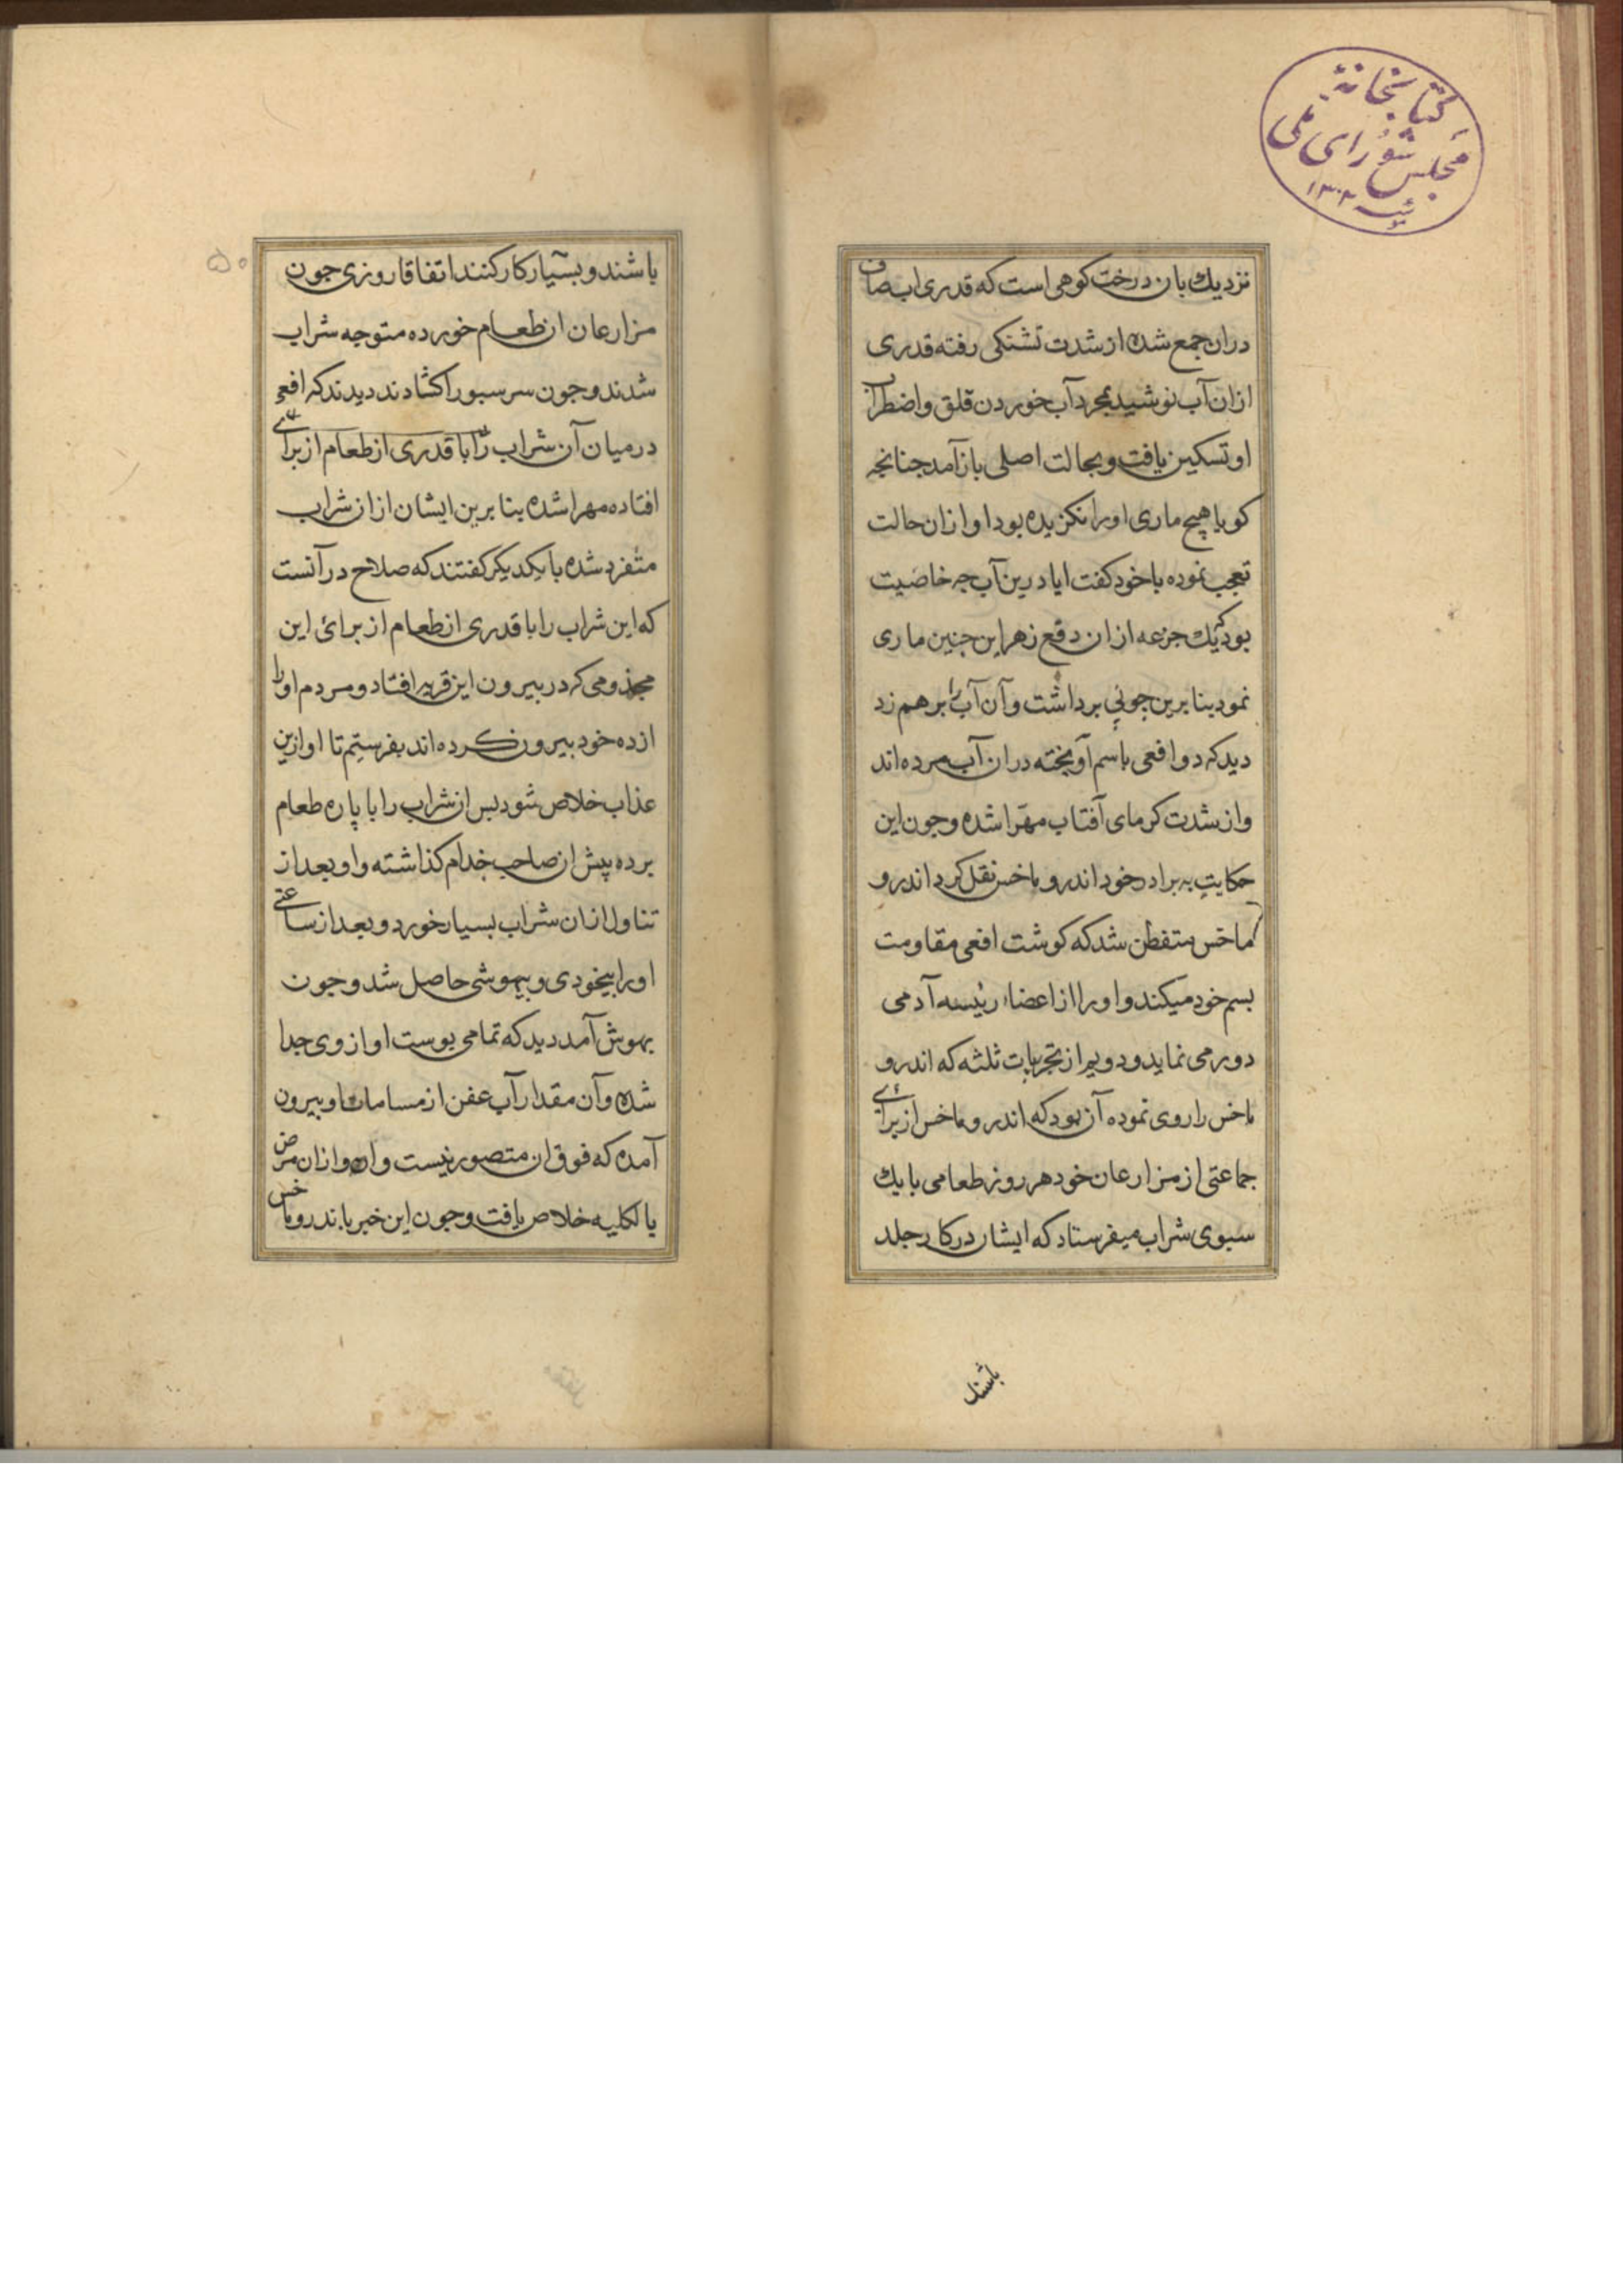 کتابخانهٔ
مجلس شورای ملی
۱۳۰۲
نزدیك بان درخت کوهی است که قدری اب صاف
دران جمع شده از شدت تشنکی رفته قدری
ازان آب نوشید بمجرد آب خوردن قلق واضطراب
او تسکین یافت وبحالت اصلی باز آمد جنانجه
کویا هیچ ماری اورا نکزیده بود او ازان حالت
تعجب نموده باخود کفت ایا درین آب جه خاصیت
بود که یك جرعه ازان دفع زهر این جنین ماری
نمود بنا برین چوبی برداشت وآن آب را برهم زد
دید که دو افعی باسم آویخته دران آب مرده اند
واز شدت کرمای آفتاب مهرّا شده وجون این
حکایت به برادر خود اندرو ماخس نقل کرد اندرو
ماخس متفطن شد که کوشت افعی مقاومت
بسم خود میکند واورا از اعضاء رئیسه آدمی
دور می نماید ودویم از تجربیات ثلثه که اندرو
ماخس را روی نموده آن بود که اندرو ماخس از برای
جماعتی از مزارعان خود هر روز طعامی با یك
سبوی شراب میفرستاد که ایشان در کار جلد
باشند
۵۰
باشند وبسیار کار کنند اتفاقا روزی جون
مزارعان ان طعام خورده متوجه شراب
شدند وجون سر سبو را کشادند دیدند که افعی
درمیان آن شراب را با قدری از طعام از برای
افتاده مهرا شده بنا برین ایشان ازان شراب
متنفرد شده با یکدیکر کفتند که صلاح در آنست
که این شراب را با قدری از طعام از برائ این
مجذومی که در بیرون این قریه افتاد ومردم اورا
از ده خود بیرون کرده اند بفرستیم تا او ازین
عذاب خلاص شود بس ان شراب را با پاره طعام
برده پیش ان صاحب جذام کذاشته واو بعد از
تناول ازان شراب بسیار خورد وبعد از ساعتی
اورا بیخودی وبیهوشی حاصل شد وجون
بهوش آمد دید که تمامی بوست او از وی جدا
شده وآن مقدار آب عفن از مسامات او بیرون
آمده که فوق ان متصور نیست واو ازان مرض
بالکلیه خلاص یافت وجون این خبر باندروماخس